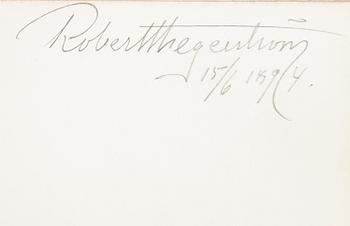 Robert Thegerström
15/6 1894.